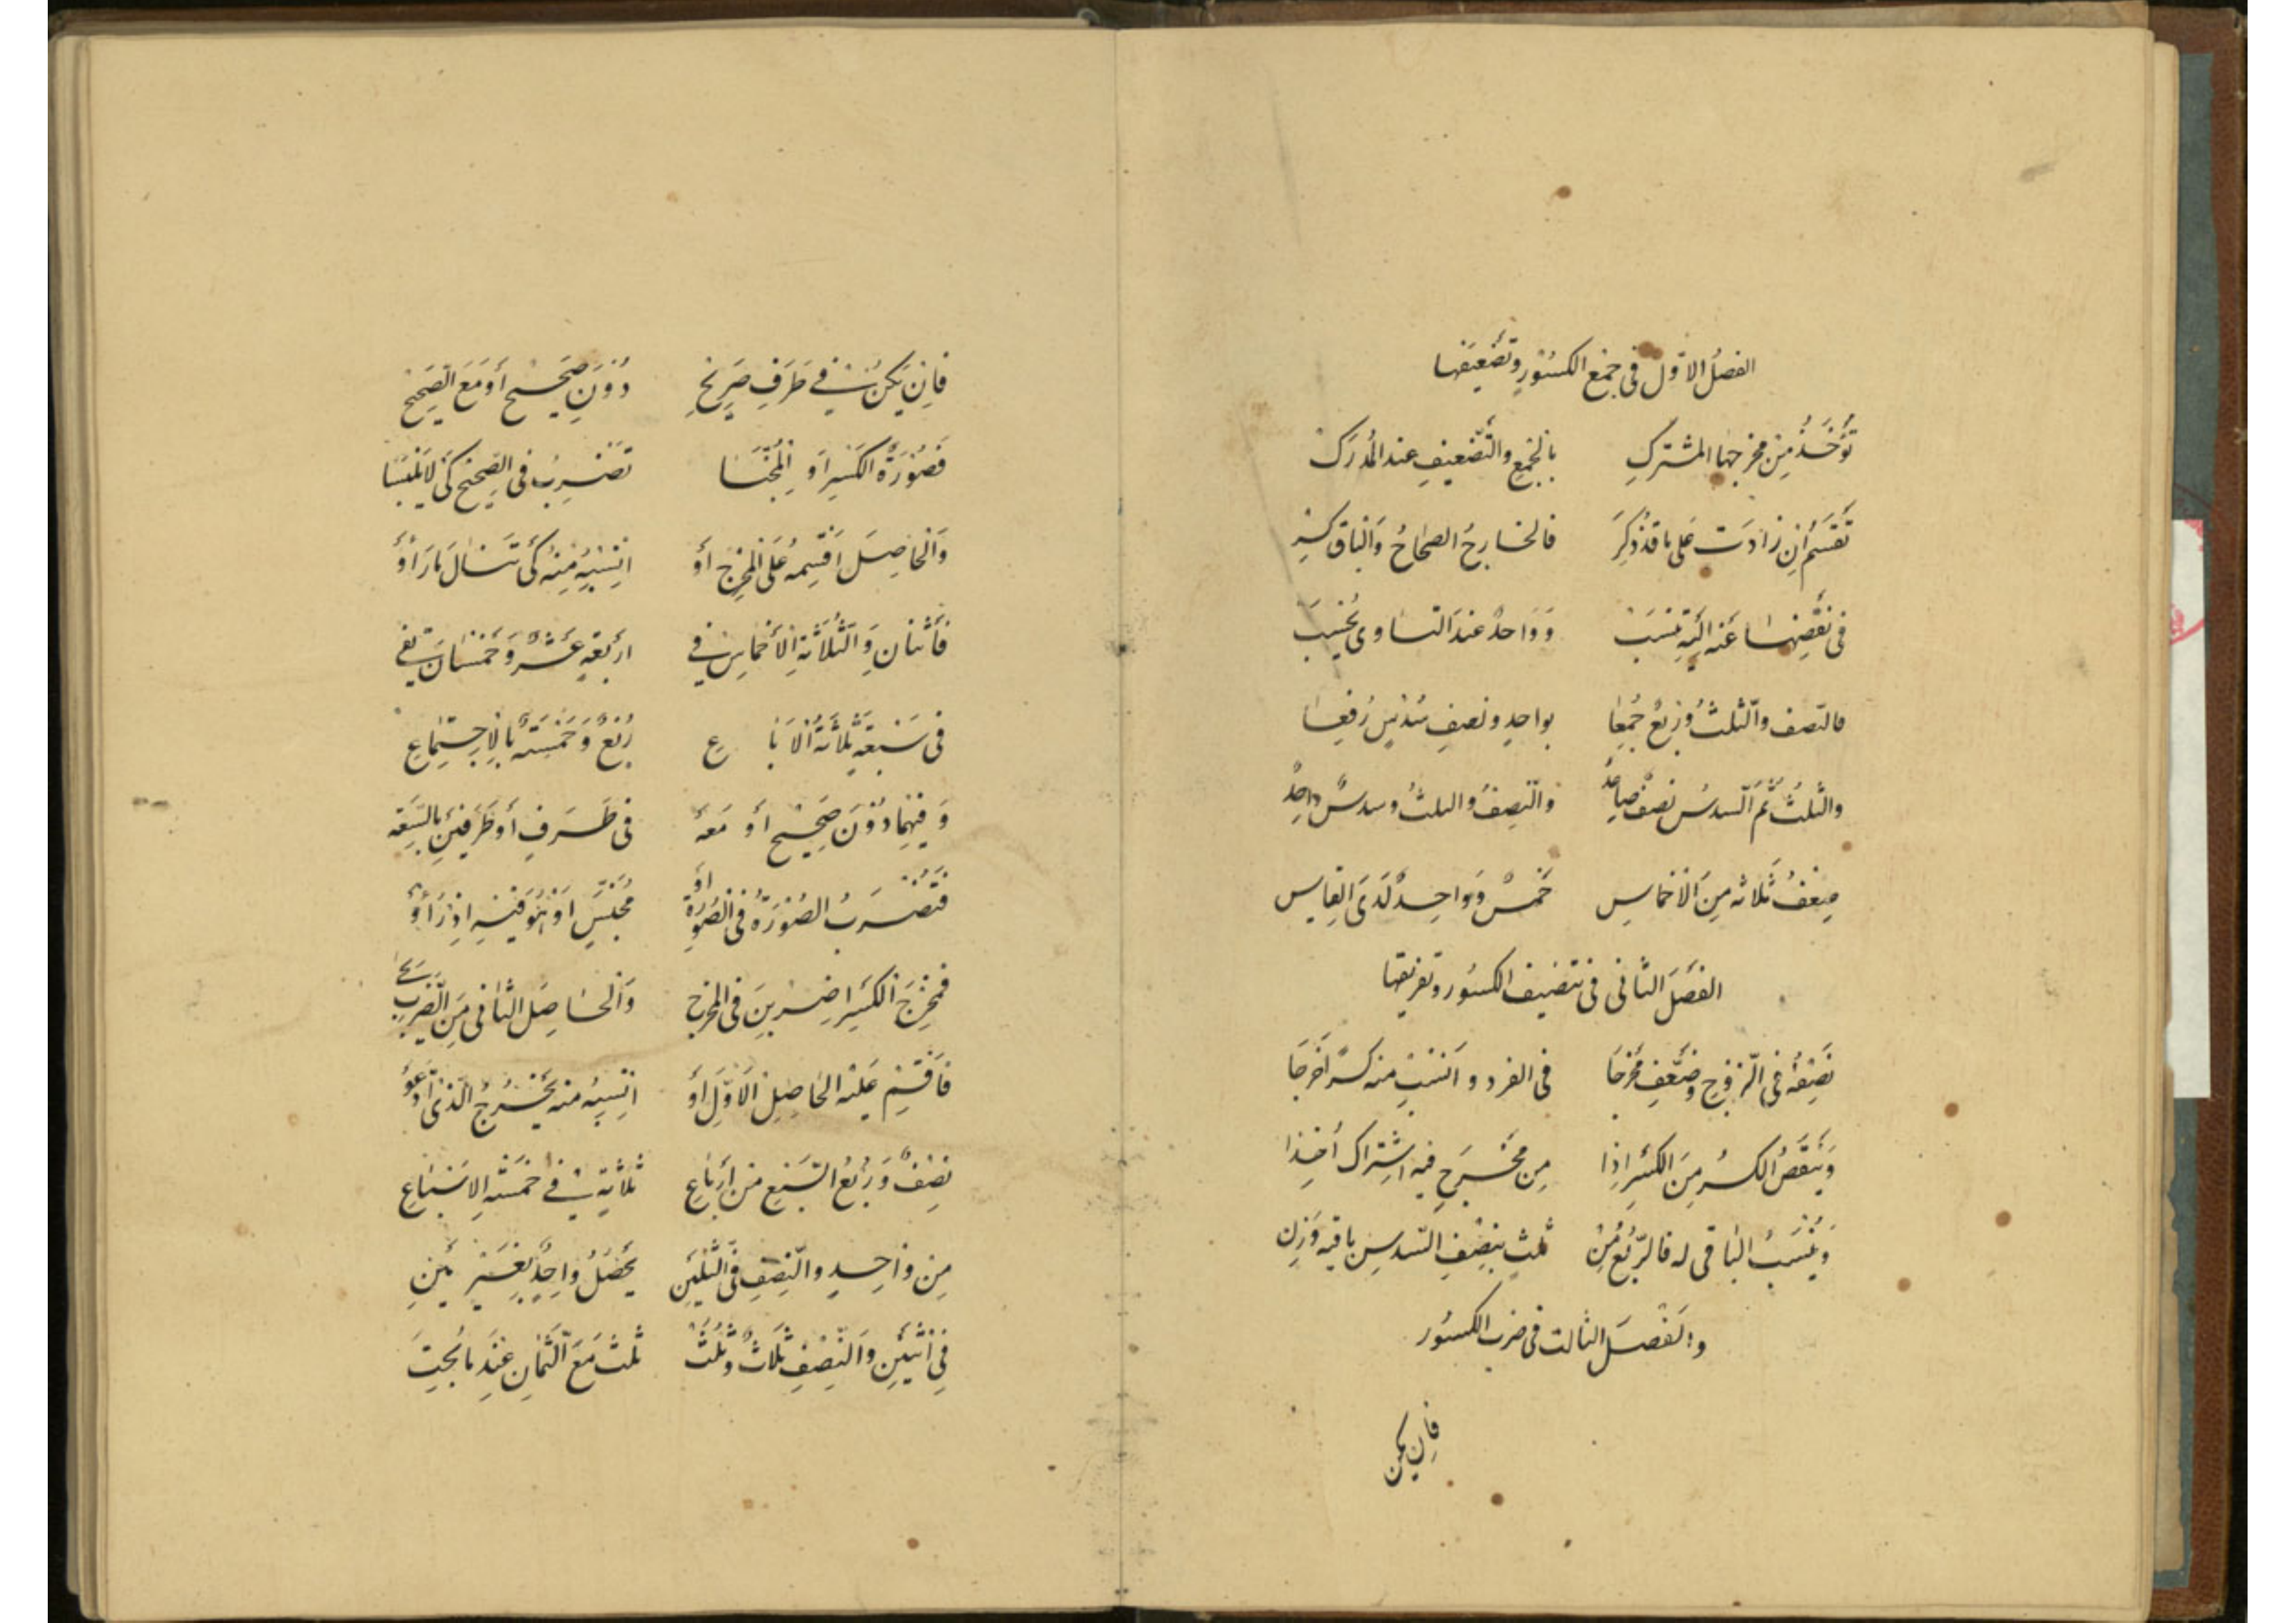 الفصلُ الاوّل فى جمع الكسُورِ وتضعيفها
تُؤخَذُ مِن مخرجها المشتركِ بالجمعِ والتَّضعيفِ عند المُدرَك
تقسَم اِن زادَت عَلى ما قد ذكِرَ فالخارجُ الصحاحُ وَالباقى كسِر
فى نقصِها عَنه اليهِ تنسبَ وَوَاحدٌ عندَ التساوى يُحسَبَ
فالنّصف والثّلثُ وربعٌ جُمِعا بواحدٍ ونصفِ سُدسٍ رُفِعا
والثلثُ ثمّ السدسُ نصفٌ صاعِدٌ والنّصِفُ والثلثُ وسدسٌ واحِدٌ
ضِعْفُ ثلاثة مِنَ الاَخماسِ خمسٌ وَواحِدٌ لَدَى القِياس
الفصَل الثانى فى تنصيف الكسُور وتفريقها
نَصِفهُ فى الزوجِ وضَعِّف مَخرَجا فى الفرد وانسُبْ منه كسرًا خرَجَا
وَينقَصُ الكسرُ مِنَ الكسرِ اِذا مِن مخرَجٍ فيه اشتِراك اُخِذا
وَيُنسَبُ الباقى له فالرّبُع مُنْ ثلثٍ بنصفِ السّدسِ باقيه وَزِن
والفصل الثالث فى ضرب الكسُور
فاِن يكن
فاِن يَكنْ فى طَرَفٍ صَرِيحِ دُونَ صَحيحٍ أو مَعَ الصَحِيح
فصُورَةُ الكسرِ اَو المُجنَّسَا تضربُ فى الصَحيحِ كَى لا يَلتَبِسَا
وَالحَاصِلَ اقسِمهُ عَلى المخرَجِ أو انسِبْهُ مِنهُ كَى تنالَ مَا رَأوْا
فاثنانِ وَالثّلاثةِ الأخماسِ فى اربَعةٍ عَشْرٌ وَخمسانِ تفى
فى سَبعَةٍ ثلاثةُ الاَرباعِ رُبْعٌ وَخمسَةٌ بالاِجتِماعِ
وَفيهِما دُونَ صَحِيحٍ أو مَعَه فى طَرَفٍ أو طَرَفينِ بالسَّعَه
فتضربُ الصُورَةُ فى الصُورَةِ او مُجنّسٍ اَو هُوَ فيهِ اِذ رَأَوْا
فمخرَجَ الكسرِ اضرِبَنْ فى المخرجِ وَالحاصِل الثانى مِنَ الضَربِ
فاقسِم عَليْه الحَاصِلَ الاَوّلَ أو انسِبهُ منه يخرُجُ الّذى ادّعَوْا
نصْفٌ وَرُبْعُ السّبعِ من أرباعِ ثلاثةٍ فى خَمْسَةِ الاَسبَاعِ
مِن واحِدٍ والنّصفِ فى الثّلثَينِ يحصُلُ وَاحِدٌ بغَيرِ مَينِ
فى اثنَينِ وَالنّصفِ ثَلاثٌ وثُلُثْ ثلثٌ مَعَ الثّمانِ عِندَ